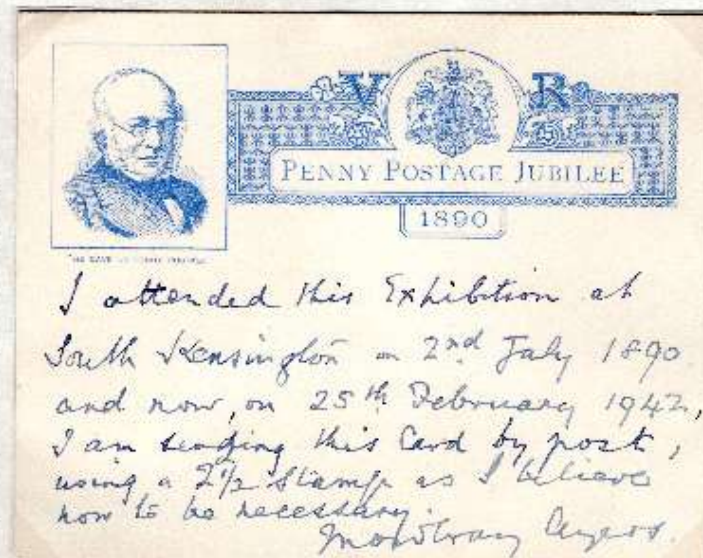 V R
PENNY POSTAGE JUBILEE
1890
I attended this Exhibition at
South Kensington on 2nd July 1890
and now, on 25th February 1942,
I am sending this Card by post,
using a 2½ Stamp as I believe
now to be necessary.